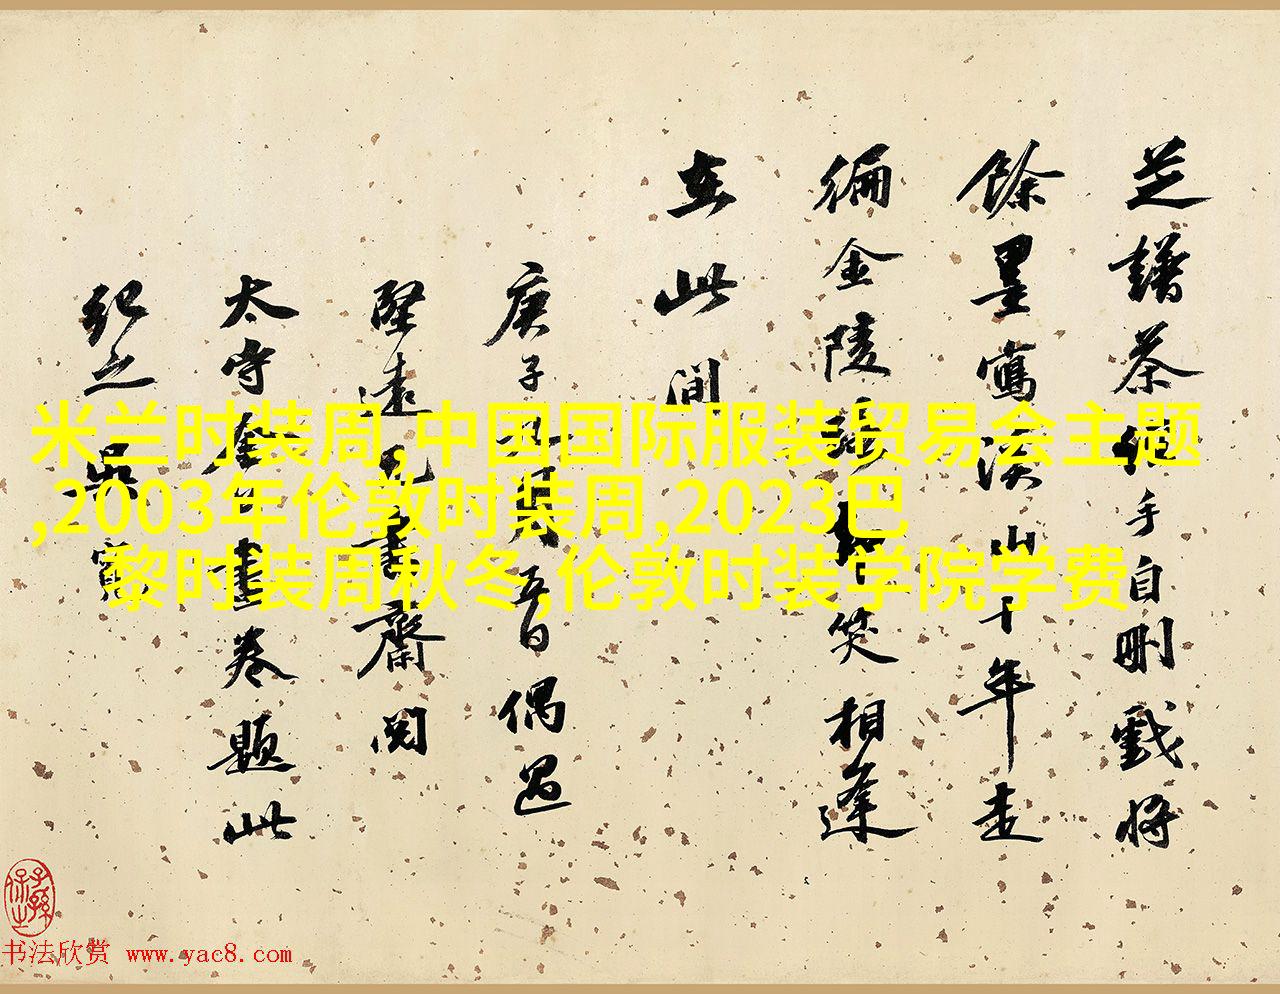 芝譜茶手自刪戲將
餘墨寫溪山十年走
徧金陵笑相逢
在此間
庚子五日偶過
堅遠書齋閱
太守畫卷題此
紀之吳
米兰时装周,中国国际服装贸易会主题
,2003年伦敦时装周,2023巴
黎时装周秋冬,伦敦时装学院学费
书法欣赏 www.yac8.com